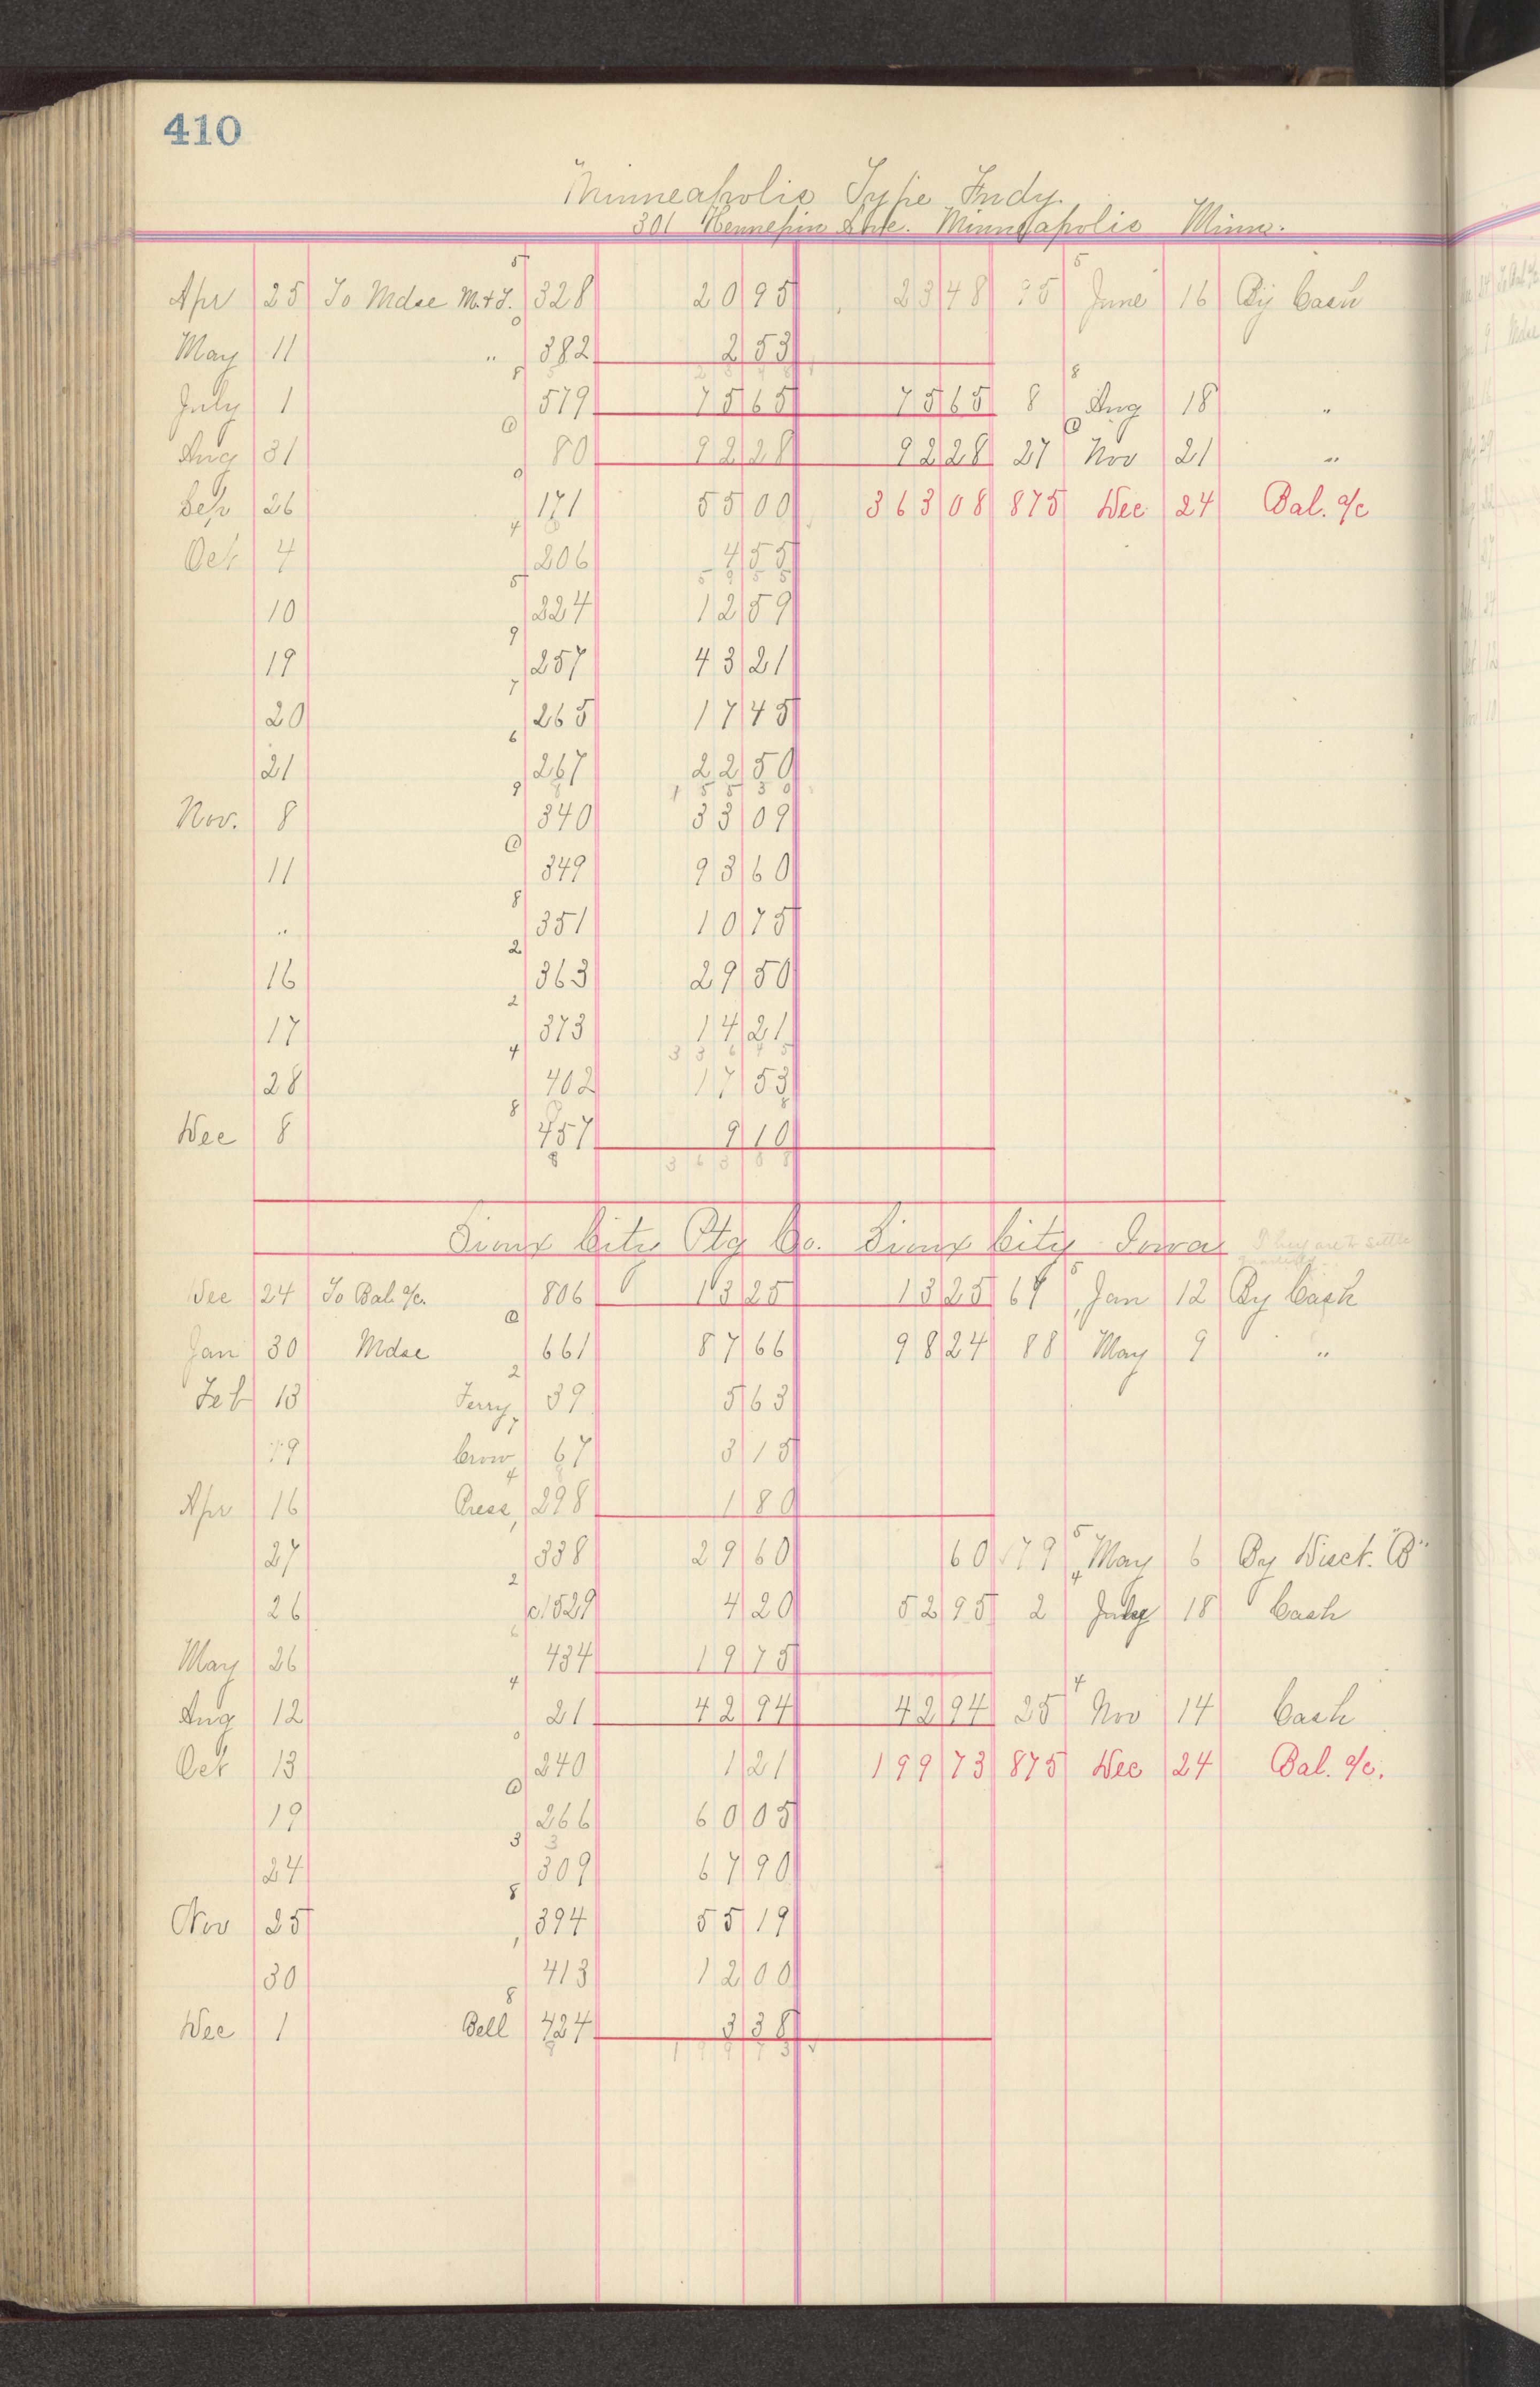 410
Minneapolis Type Fndy.
301 Hennepin Ave. Minneapolis Minn.
Apr 25 To Mdse M.&S. 328 20 95 23 48 95 June 16 By Cash
May 11 " 382 2 53
July 1 579 75 65 75 65 8 Aug 18 "
Aug 31 80 92 28 92 28 27 Nov 21 "
Sep 26 171 55 00 363 08 875 Dec 24 Bal. a/c
Oct 4 206 4 55
59 55
10 224 12 59
19 257 43 21
20 265 17 45
21 267 22 50
155 30
Nov. 8 340 33 09
11 349 93 60
" 351 10 75
16 363 29 50
17 373 14 21
336 45
28 402 17 53
Dec 8 457 9 10
363 08
Sioux City Ptg Co. Sioux City Iowa
They are to settle
Dec 24 To Bal. a/c. 806 13 25 13 25 64 Jan 12 By Cash
Jan 30 Mdse 661 87 66 98 24 88 May 9 "
Feb 13 Ferry 39 5 63
19 Crow 67 3 15
Apr 16 Press 298 1 80
27 338 29 60 60 79 May 6 By Disct. "B"
26 c/529 4 20 52 95 2 July 18 Cash
May 26 434 19 75
Aug 12 21 42 94 42 94 25 Nov 14 Cash
Oct 13 240 1 21 199 73 875 Dec 24 Bal. a/c.
19 266 60 05
24 309 67 90
Nov 25 394 55 19
30 413 12 00
Dec 1 Bell 424 3 38
199 73